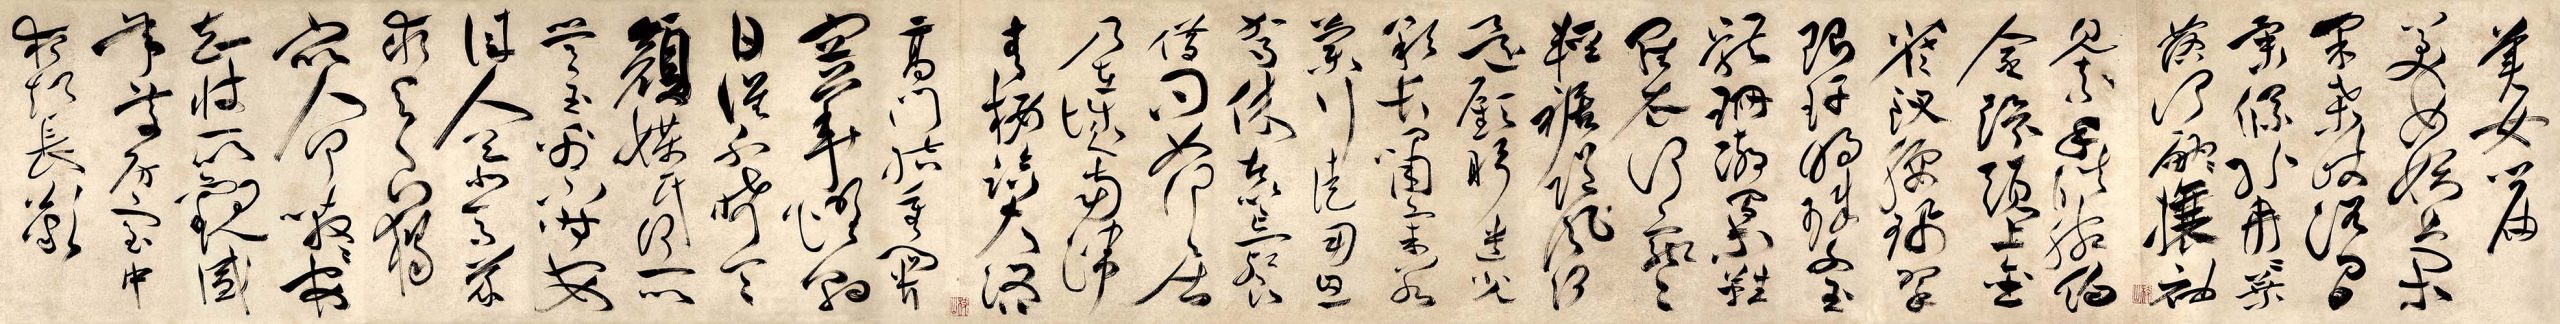 美女篇
美女妖且閑
采桑歧路間
柔條紛冉冉葉
落何翩翩攘袖
見素手皓腕約
金環頭上金
爵釵腰佩翠
琅玕明珠交玉
體珊瑚間木難
羅衣何飄飄
輕裾隨風還
顧盻遺光
彩長嘯氣若
蘭行徒用息
駕休者以忘餐
借問女何居
乃在城南端
青樓臨大路
高門結重關
容華耀朝
日誰不希令
顏媒氏何所
營玉帛不時安
佳人慕高義
求賢良獨難
眾人何嗷嗷安
知彼所觀盛
年處房室中
夜起長歎